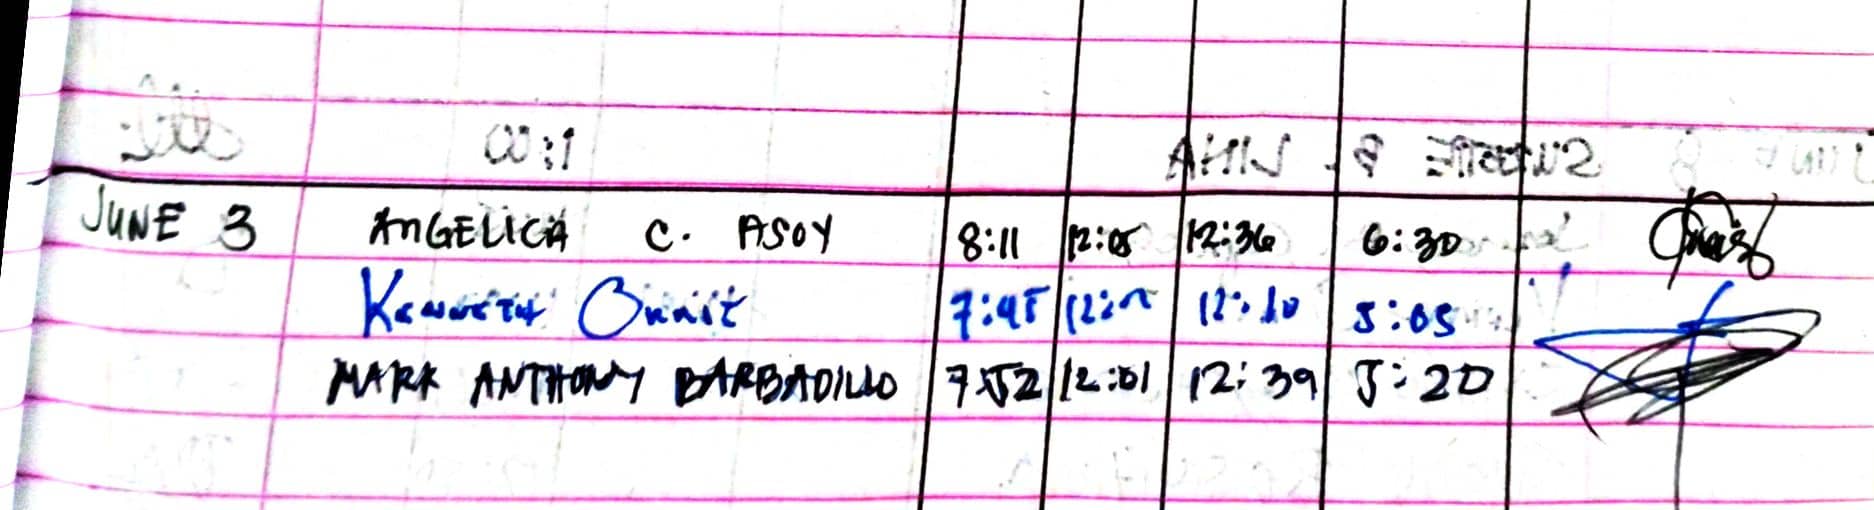 JUNE 3 ANGELICA C. ASOY 8:11 12:05 12:36 6:30
Kenneth 7:45 12:10 5:05
MARK ANTHONY BARBADILLO 7:52 12:01 12:39 5:20